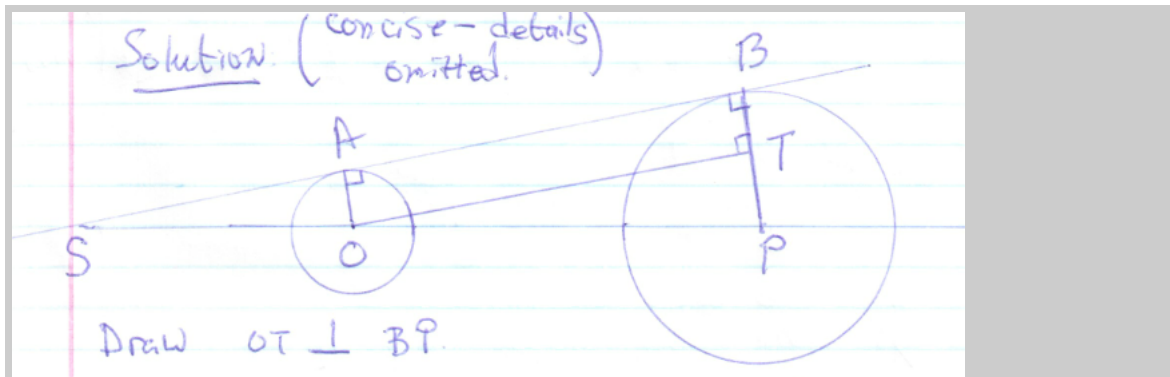 Solution. (concise - details
omitted.)
B
A
T
S
O
P
Draw OT ⊥ BP.